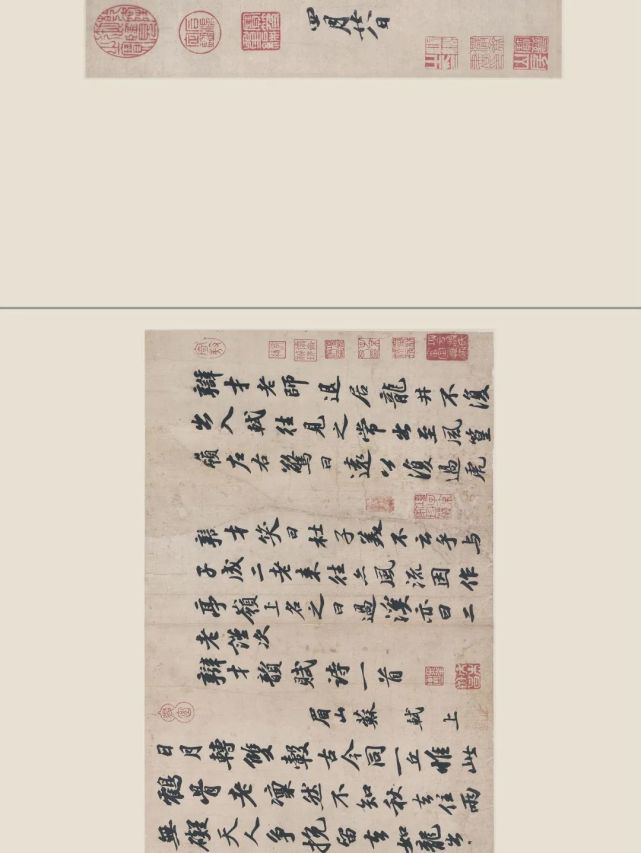 四月廿八日
辯才老師退居龍井不復
出入軾往見之常出至風篁
嶺左右驚曰遠公復過虎
辯才笑曰杜子美不云乎与
子成二老来往亦風流因作
亭嶺上名之曰過溪亦曰二
老謹次
辯才韻賦詩一首
眉山蘇軾上
日月轉雙轂古今同一丘惟此
鶴骨老凜然不知秋去住兩
無礙天人爭挽留去如龍出